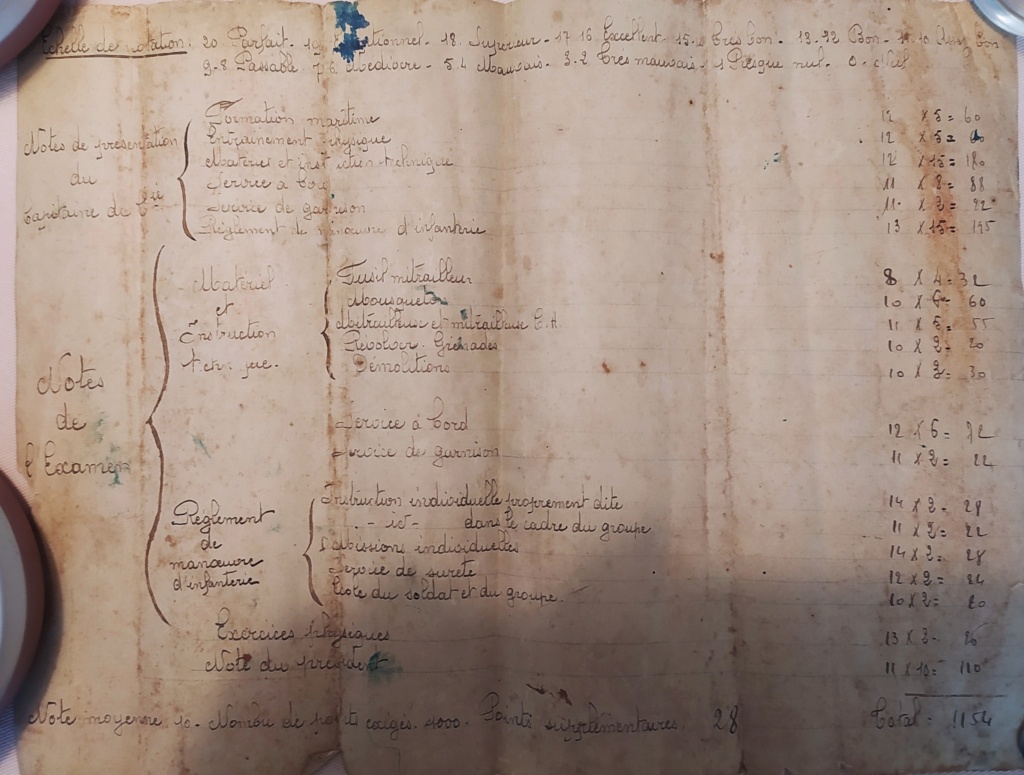 Echelle de notation: 20 Parfait - 19 - 18. Superieur - 17-16. Excellent - 15. Très bon - 13-12 Bon - 10 Assez bon
9-8 Passable. 7-6 Médiocre - 5.4 Mauvais - 3-2 Très mauvais - 1 Presque nul - 0. Nul
Formation maritime 12 x 5 = 60
Notes de présentation Entrainement physique 12 x 5 =
du Matériel et instruction technique 12 x 15 = 180
Service à bord 11 x 8 = 88
Capitaine de Cie Service de garnison 11 x 2 = 22
Réglement de manœuvre d'infanterie 13 x 15 = 195
Matériel Fusil mitrailleur 8 x 4 = 32
et Mousqueton 10 x 6 = 60
Instruction Mitrailleuse et mitrailleuse C.A. 11 x 5 = 55
Revolver - Grenades 10 x 2 = 20
Démolitions 10 x 3 = 30
Notes
de Service à bord 12 x 6 = 72
l'Examen Service de garnison 11 x 2 = 22
Instruction individuelle proprement dite 14 x 2 = 28
Réglement - id - dans le cadre du groupe 11 x 2 = 22
de Missions individuelles 14 x 2 = 28
manœuvre Service de sureté 12 x 2 = 24
d'infanterie Ecole du soldat et du groupe. 10 x 2 = 20
Exercices physiques 13 x 2 = 26
Note du président 11 x 10 = 110
Note moyenne 10 - Nombre de points exigés. 1000. Points supplémentaires. 28 Total = 1154